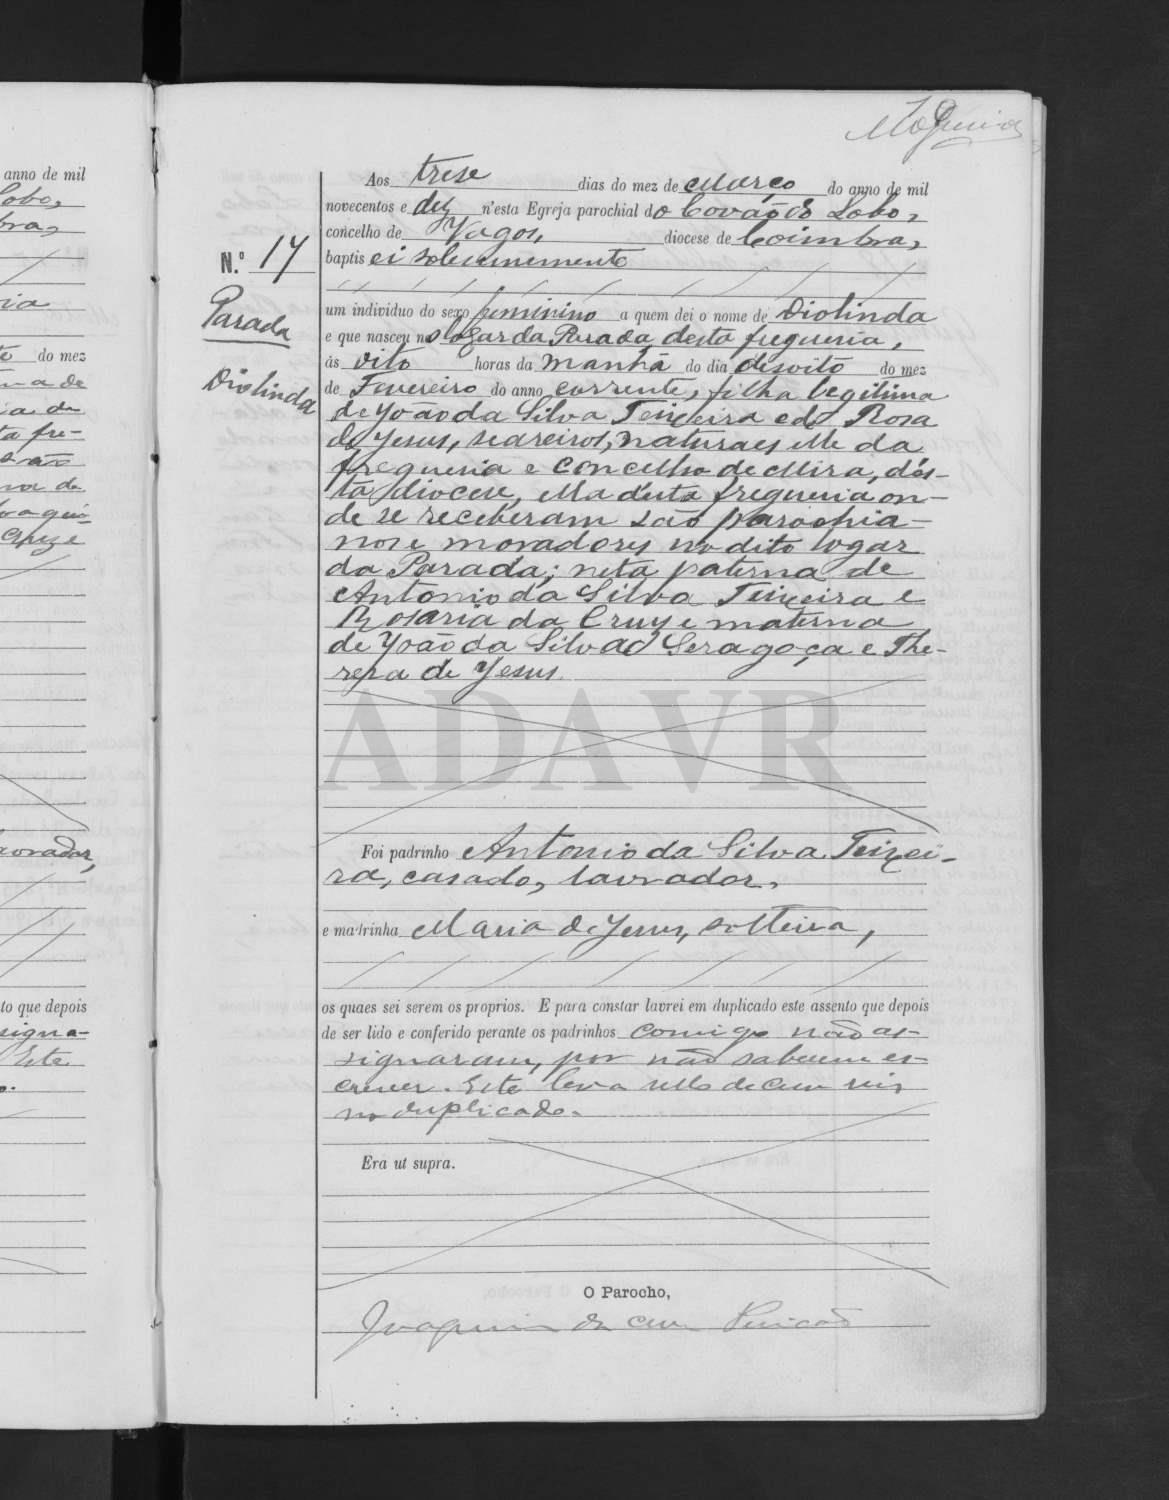 anno de mil
Lobo,
bra,
ria
te do mez
ta fre-
são
lavrador,
to que depois
signa-
Este
o.
Aos trese dias do mez de Março do anno de mil
novecentos e dez n'esta Egreja parochial do Covão do Lobo,
concelho de Vagos, diocese de Coimbra,
baptisei solemnemente
N.º 17
Parada
Diolinda
um individuo do sexo feminino a quem dei o nome de Diolinda
e que nasceu no logar da Parada desta freguesia,
ás oito horas da manhã do dia desoito do mez
de Fevereiro do anno corrente, filha legitima
de João da Silva Teixeira e de Rosa
de Jesus, seareiros, naturaes elle da
freguesia e concelho de Mira, dés-
ta diocese, ella desta freguesia on-
de se receberam são parochia-
nos e moradores no dito logar
da Parada; neta paterna de
Antonio da Silva Teixeira e
Rosaria da Cruz e materna
de João da Silva Seragoça e The-
reza de Jesus.
ADAVR
Foi padrinho Antonio da Silva Teixei-
ra, casado, lavrador,
e madrinha Maria de Jesus, solteira,
os quaes sei serem os proprios. E para constar lavrei em duplicado este assento que depois
de ser lido e conferido perante os padrinhos comigo não as-
signaram, por não saberem es-
crever. Este leva sello de cem reis
no duplicado.
Era ut supra.
O Parocho,
Joaquim da